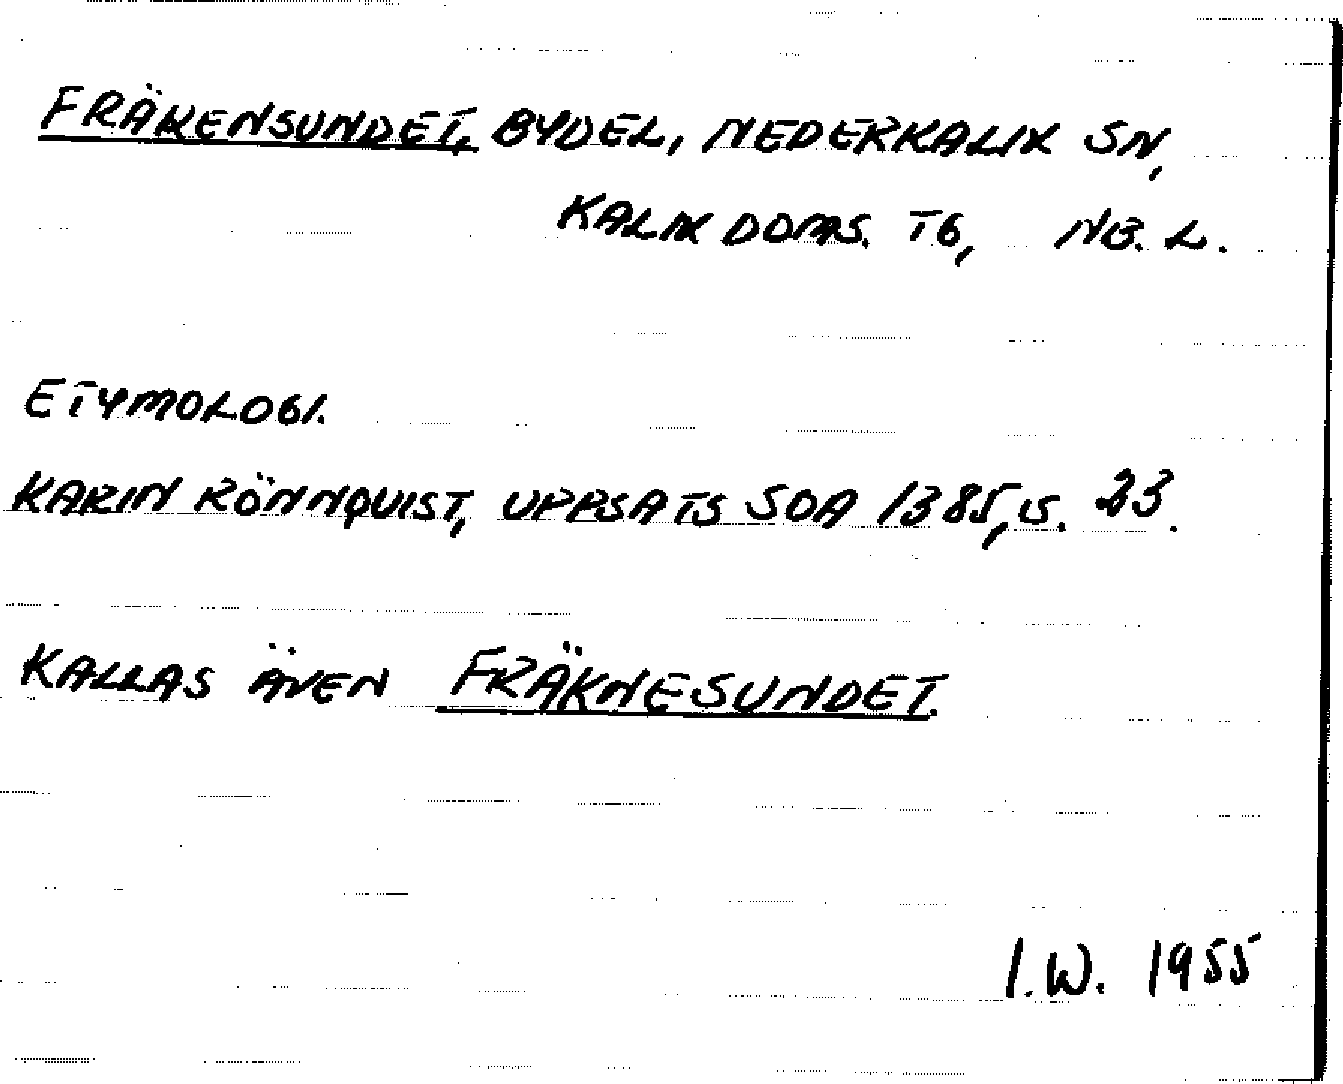 FRÄKENSUNDET, BYDEL, NEDERKALIX SN,
KALIX DOMS. TG, NB. L.
ETYMOLOGI.
KARIN RÖNNQUIST, UPPSATS SOA 1385, S. 23.
KALLAS ÄVEN FRÄKNESUNDET.
I.W. 1955